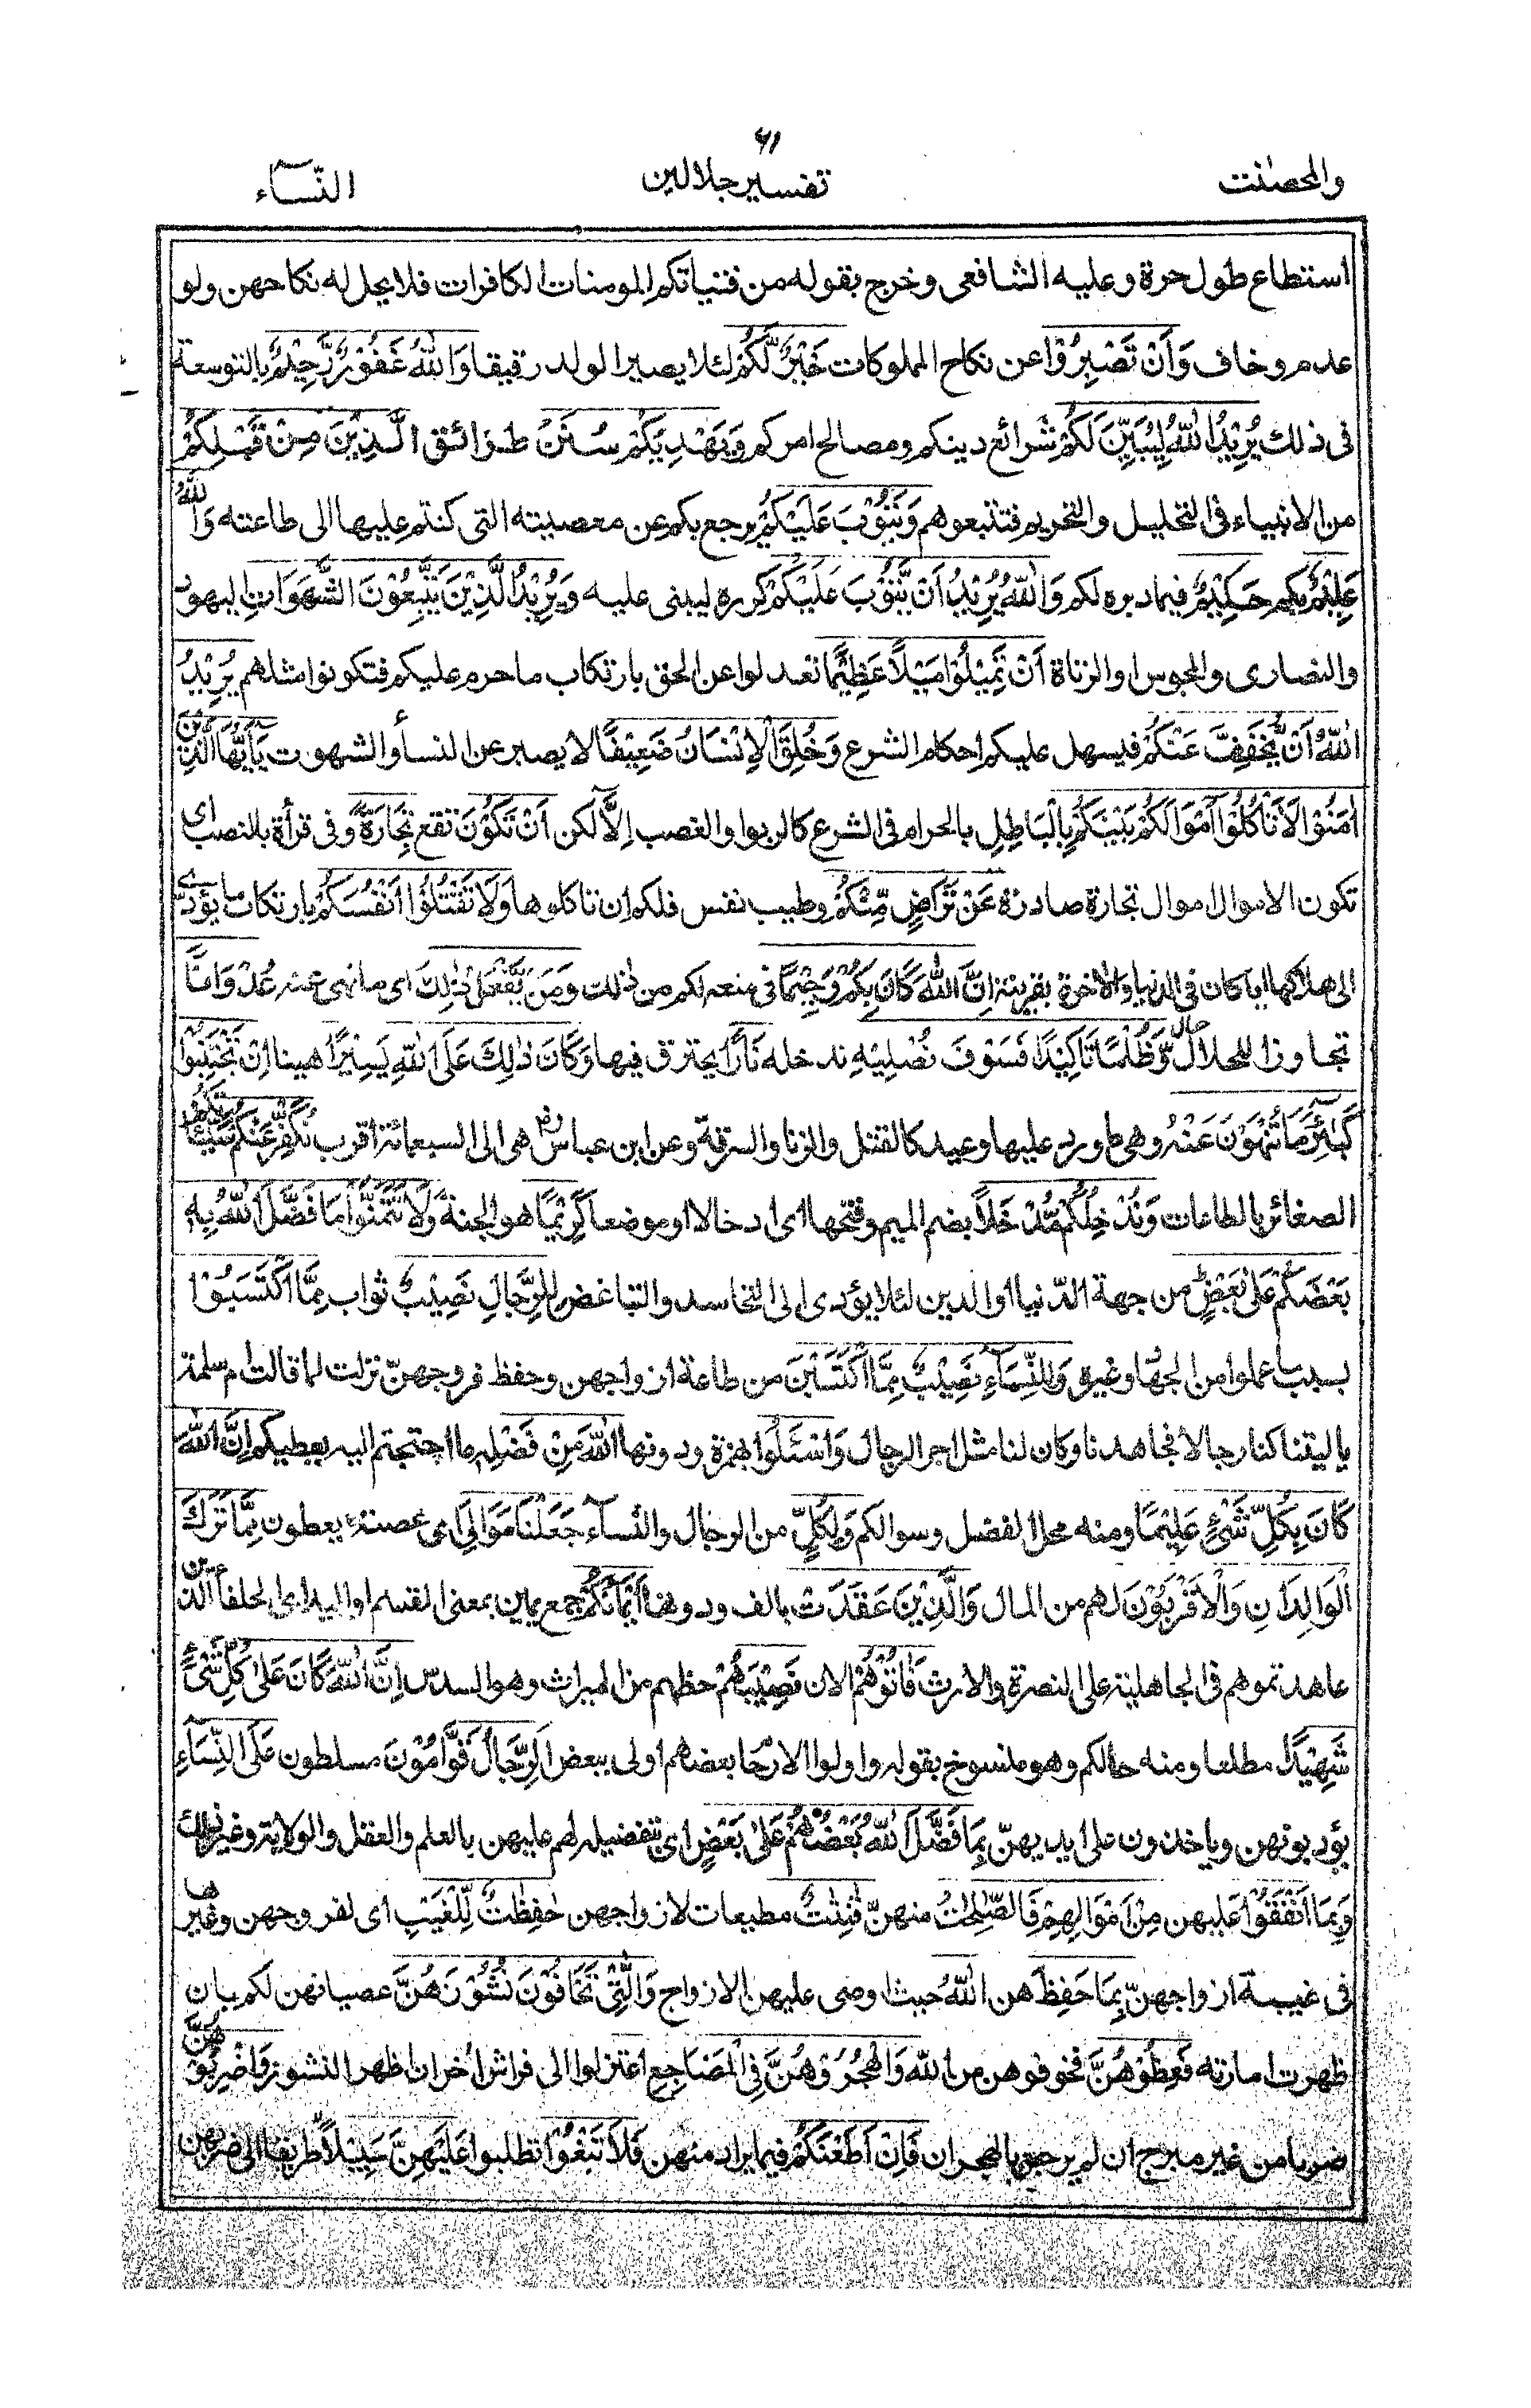 ٧١
والمحصنت تفسير جلالين النّسآء
استطاع طول حرة وعليه الشافعى وخرج بقوله من فتياتكم المومنات الكافرات فلا يحل له نكاحهن ولو
عدم وخاف وَاَنْ تَصْبِرُوْا عن نكاح المملوكات خَيْرٌ لَّكُمْ لئلا يصير الولد رقيقا وَاللّٰهُ غَفُوْرٌ رَّحِيْمٌ بالتوسعة
فى ذلك يُرِيْدُ اللّٰهُ لِيُبَيِّنَ لَكُمْ شرائع دينكم ومصالح امركم وَيَهْدِيَكُمْ سُنَنَ طرائق الَّذِيْنَ مِنْ قَبْلِكُمْ
من الانبياء فى التحليل والتحريم فتتبعوهم وَيَتُوْبَ عَلَيْكُمْ يرجع بكم عن معصيته التى كنتم عليها الى طاعته وَاللّٰهُ
عَلِيْمٌ بكم حَكِيْمٌ فيما دبره لكم وَاللّٰهُ يُرِيْدُ اَنْ يَّتُوْبَ عَلَيْكُمْ كرره ليبنى عليه وَيُرِيْدُ الَّذِيْنَ يَتَّبِعُوْنَ الشَّهَوَاتِ اليهود
والنصارى والمجوس او الزناة اَنْ تَمِيْلُوْا مَيْلًا عَظِيْمًا تعدلوا عن الحق بارتكاب ما حرم عليكم فتكونوا مثلهم يُرِيْدُ
اللّٰهُ اَنْ يُّخَفِّفَ عَنْكُمْ فيسهل عليكم احكام الشرع وَخُلِقَ الْاِنْسَانُ ضَعِيْفًا لا يصبر عن النسأ والشهوت يٰٓاَيُّهَا الَّذِيْنَ
اٰمَنُوْا لَا تَاْكُلُوْٓا اَمْوَالَكُمْ بَيْنَكُمْ بِالْبَاطِلِ بالحرام فى الشرع كالربوا والغصب اِلَّآ لكن اَنْ تَكُوْنَ تقع تِجَارَةً وفى قرأة بالنصب اى
تكون الاموال اموال تجارة صادرة عَنْ تَرَاضٍ مِّنْكُمْ وطيب نفس فلكم ان تاكلوها وَلَا تَقْتُلُوْٓا اَنْفُسَكُمْ بارتكاب ما يؤدّى
الى هلاكها ايا كان فى الدنيا والاخرة بقرينة اِنَّ اللّٰهَ كَانَ بِكُمْ رَحِيْمًا فى منعه لكم من ذلك وَمَنْ يَّفْعَلْ ذٰلِكَ اى ما نهى عنه عُدْوَانًا
تجاوزا للحلال حال وَّظُلْمًا تاكيدا فَسَوْفَ نُصْلِيْهِ ندخله نَارًا يحترق فيها وَكَانَ ذٰلِكَ عَلَى اللّٰهِ يَسِيْرًا هينا اِنْ تَجْتَنِبُوْا
كَبٰٓئِرَ مَا تُنْهَوْنَ عَنْهُ وهى ما ورد عليها وعيد كالقتل والزنا والسرقة وعن ابن عباس رض هى الى السبعمائة اقرب نُكَفِّرْ عَنْكُمْ سَيِّئٰتِكُمْ
الصغائر بالطاعات وَنُدْخِلْكُمْ مُّدْخَلًا بضم الميم وفتحها اى ادخالا او موضعا كَرِيْمًا هو الجنة وَلَا تَتَمَنَّوْا مَا فَضَّلَ اللّٰهُ بِهٖ
بَعْضَكُمْ عَلٰى بَعْضٍ من جهة الدّنيا او الدين لئلا يؤدى الى التحاسد والتباغض لِلرِّجَالِ نَصِيْبٌ ثواب مِمَّا اكْتَسَبُوْا
بسبب ما عملوا من الجهاد وغيره وَلِلنِّسَآءِ نَصِيْبٌ مِمَّا اكْتَسَبْنَ من طاعة ازواجهن وحفظ فروجهنّ نزلت لما قالت ام سلمة
يا ليتنا كنا رجالا فجاهدنا وكان لنا مثل اجر الرجال وَاسْئَلُوا بهمزة ودونها اللّٰهَ مِنْ فَضْلِهٖ ما احتجتم اليه يعطيكم اِنَّ اللّٰهَ
كَانَ بِكُلِّ شَىْءٍ عَلِيْمًا ومنه محل الفضل وسوالكم وَلِكُلٍّ من الرجال والنسآء جَعَلْنَا مَوَالِىَ اى عصبة يعطون مِمَّا تَرَكَ
الْوَالِدَانِ وَالْاَقْرَبُوْنَ لهم من المال وَالَّذِيْنَ عَقَدَتْ بالف ودونها اَيْمَانُكُمْ جمع يمين بمعنى القسم او اليد اى الحلفأ الذين
عاهدتموهم فى الجاهلية على النصرة والارث فَاٰتُوْهُمْ الان نَصِيْبَهُمْ حظهم من الميراث وهو السدس اِنَّ اللّٰهَ كَانَ عَلٰى كُلِّ شَىْءٍ
شَهِيْدًا مطلعا ومنه حالكم وهو منسوخ بقوله واولوا الارحا بعضهم اولى ببعض اَلرِّجَالُ قَوَّامُوْنَ مسلطون عَلَى النِّسَآءِ
يؤدبونهن وياخذون على ايديهنّ بِمَا فَضَّلَ اللّٰهُ بَعْضَهُمْ عَلٰى بَعْضٍ اى بتفضيله لهم عليهن بالعلم والعقل والولاية وغير ذلك
وَبِمَا اَنْفَقُوْا عليهن مِنْ اَمْوَالِهِمْ فَالصّٰلِحٰتُ منهنّ قٰنِتٰتٌ مطيعات لازواجهن حٰفِظٰتٌ لِّلْغَيْبِ اى لفروجهن وغيرها
فى غيبة ازواجهنّ بِمَا حَفِظَ هن اللّٰهُ حيث اوصى عليهن الازواج وَالّٰتِىْ تَخَافُوْنَ نُشُوْزَهُنَّ عصيانهن لكم بان
ظهرت امارته فَعِظُوْهُنَّ فخوفوهن من الله وَاهْجُرُوْهُنَّ فِى الْمَضَاجِعِ اعتزلوا الى فراش اخر ان اظهر النشوز وَاضْرِبُوْهُنَّ
ضربا من غير مبرح ان لم يرجعن بالهجران فَاِنْ اَطَعْنَكُمْ فيما يراد منهن فَلَا تَبْغُوْا تطلبوا عَلَيْهِنَّ سَبِيْلًا طريقا الى ضربهن